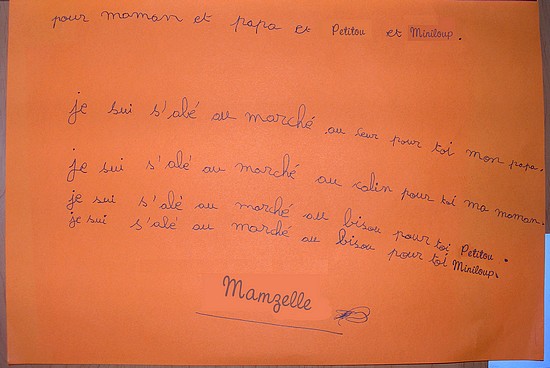 pour maman et papa et Petitou et Miniloup.
je sui s'alé au marché au leur pour toi mon papa.
je sui s'alé au marché au calin pour toi ma maman.
je sui s'alé au marché au bisou pour toi Petitou.
je sui s'alé au marché au bisou pour toi Miniloup.
Mamzelle